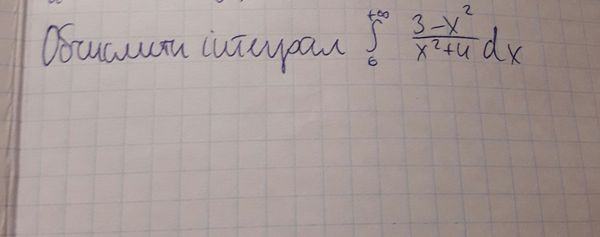 Обчислити інтеграл ∫₆^{+∞} (3-x²)/(x²+4) dx